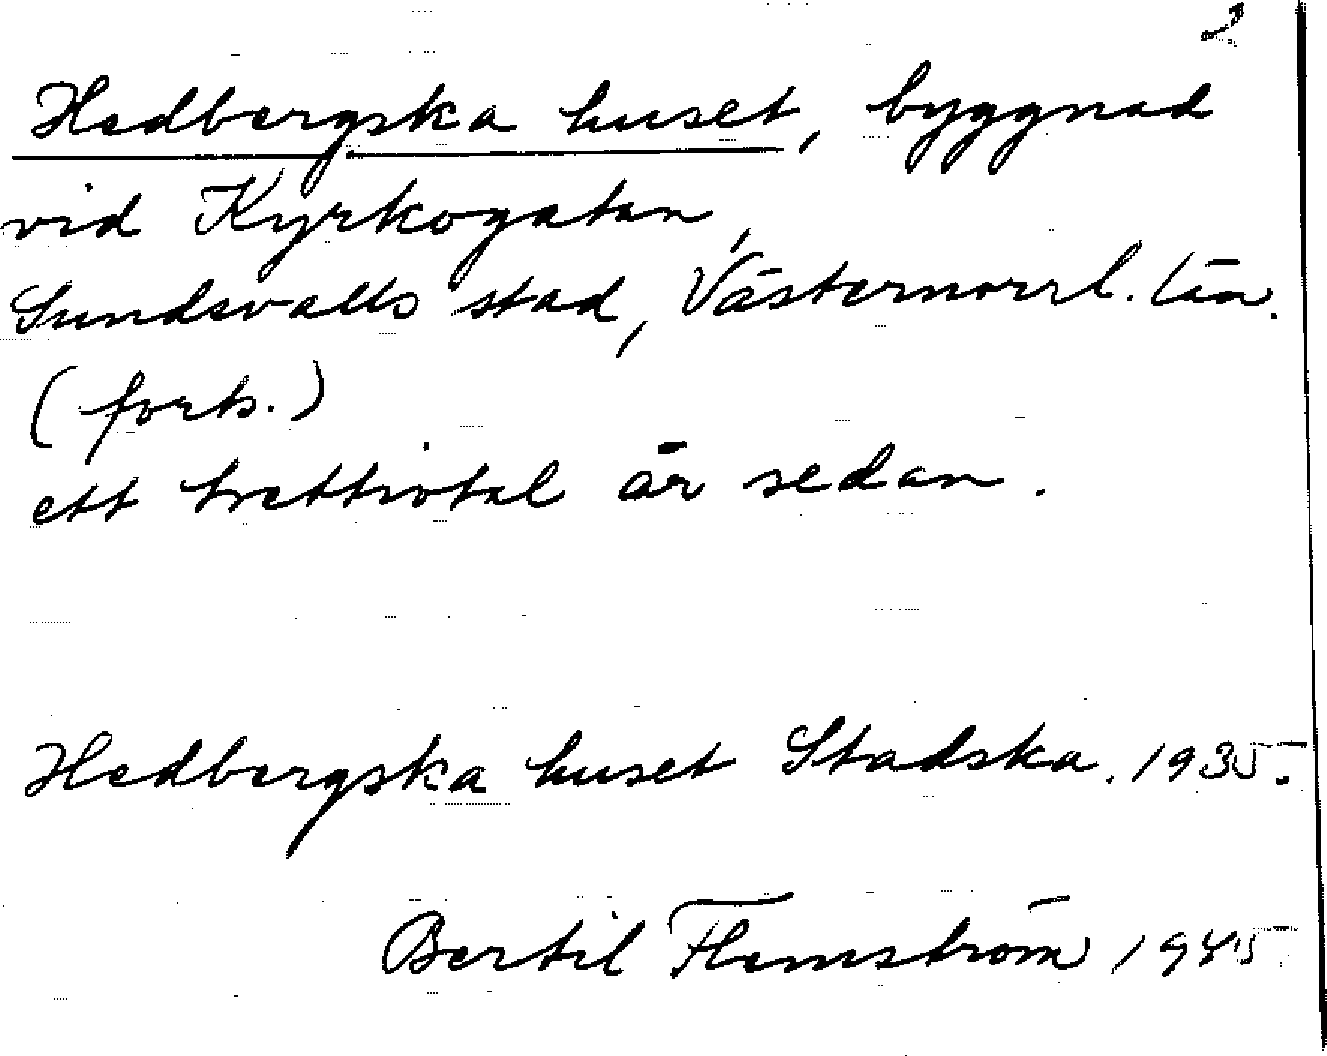 2
Hedbergska huset, byggnad
vid Kyrkogatan,
Sundsvalls stad, Västernorrl. län.
(forts.)
ett trettiotal år sedan.
Hedbergska huset Stadska. 1935.
Bertil Flemström 1945